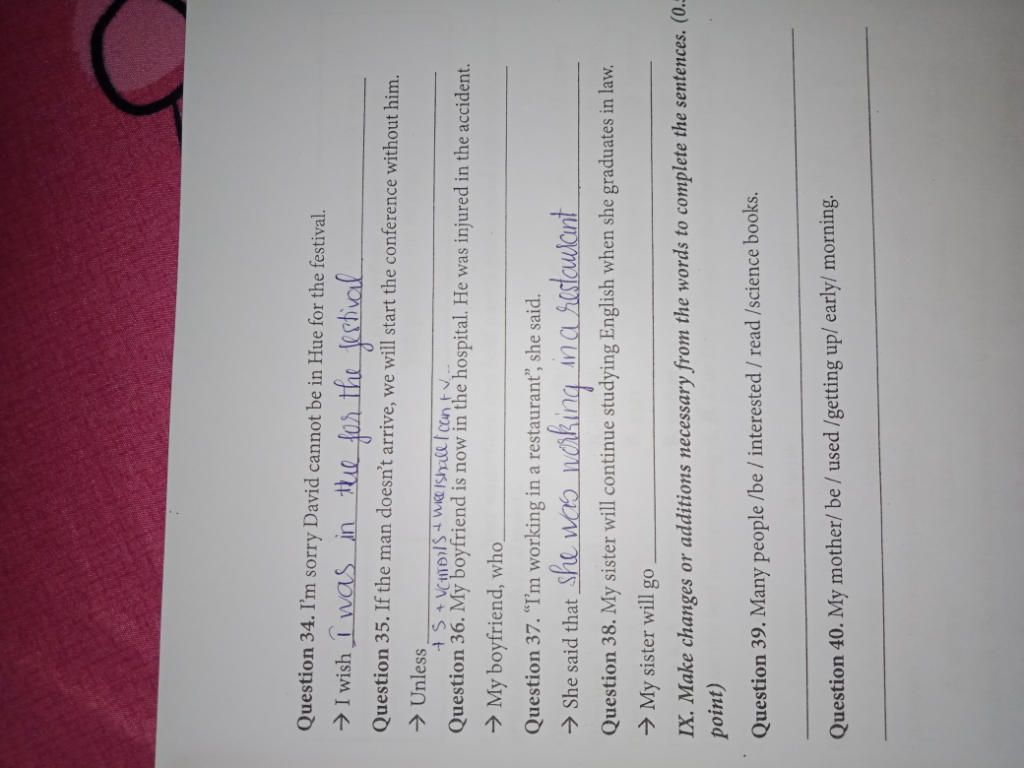 Question 34. I'm sorry David cannot be in Hue for the festival.
→ I wish I was in the for the festival
Question 35. If the man doesn't arrive, we will start the conference without him.
→ Unless
+ S + V(
Question 36. My boyfriend is now in the hospital. He was injured in the accident.
→ My boyfriend, who
Question 37. “I'm working in a restaurant”, she said.
→ She said that she was working in a restaurant
Question 38. My sister will continue studying English when she graduates in law.
→ My sister will go
IX. Make changes or additions necessary from the words to complete the sentences. (0.
point)
Question 39. Many people /be / interested / read /science books.
Question 40. My mother/ be / used /getting up/ early/ morning.